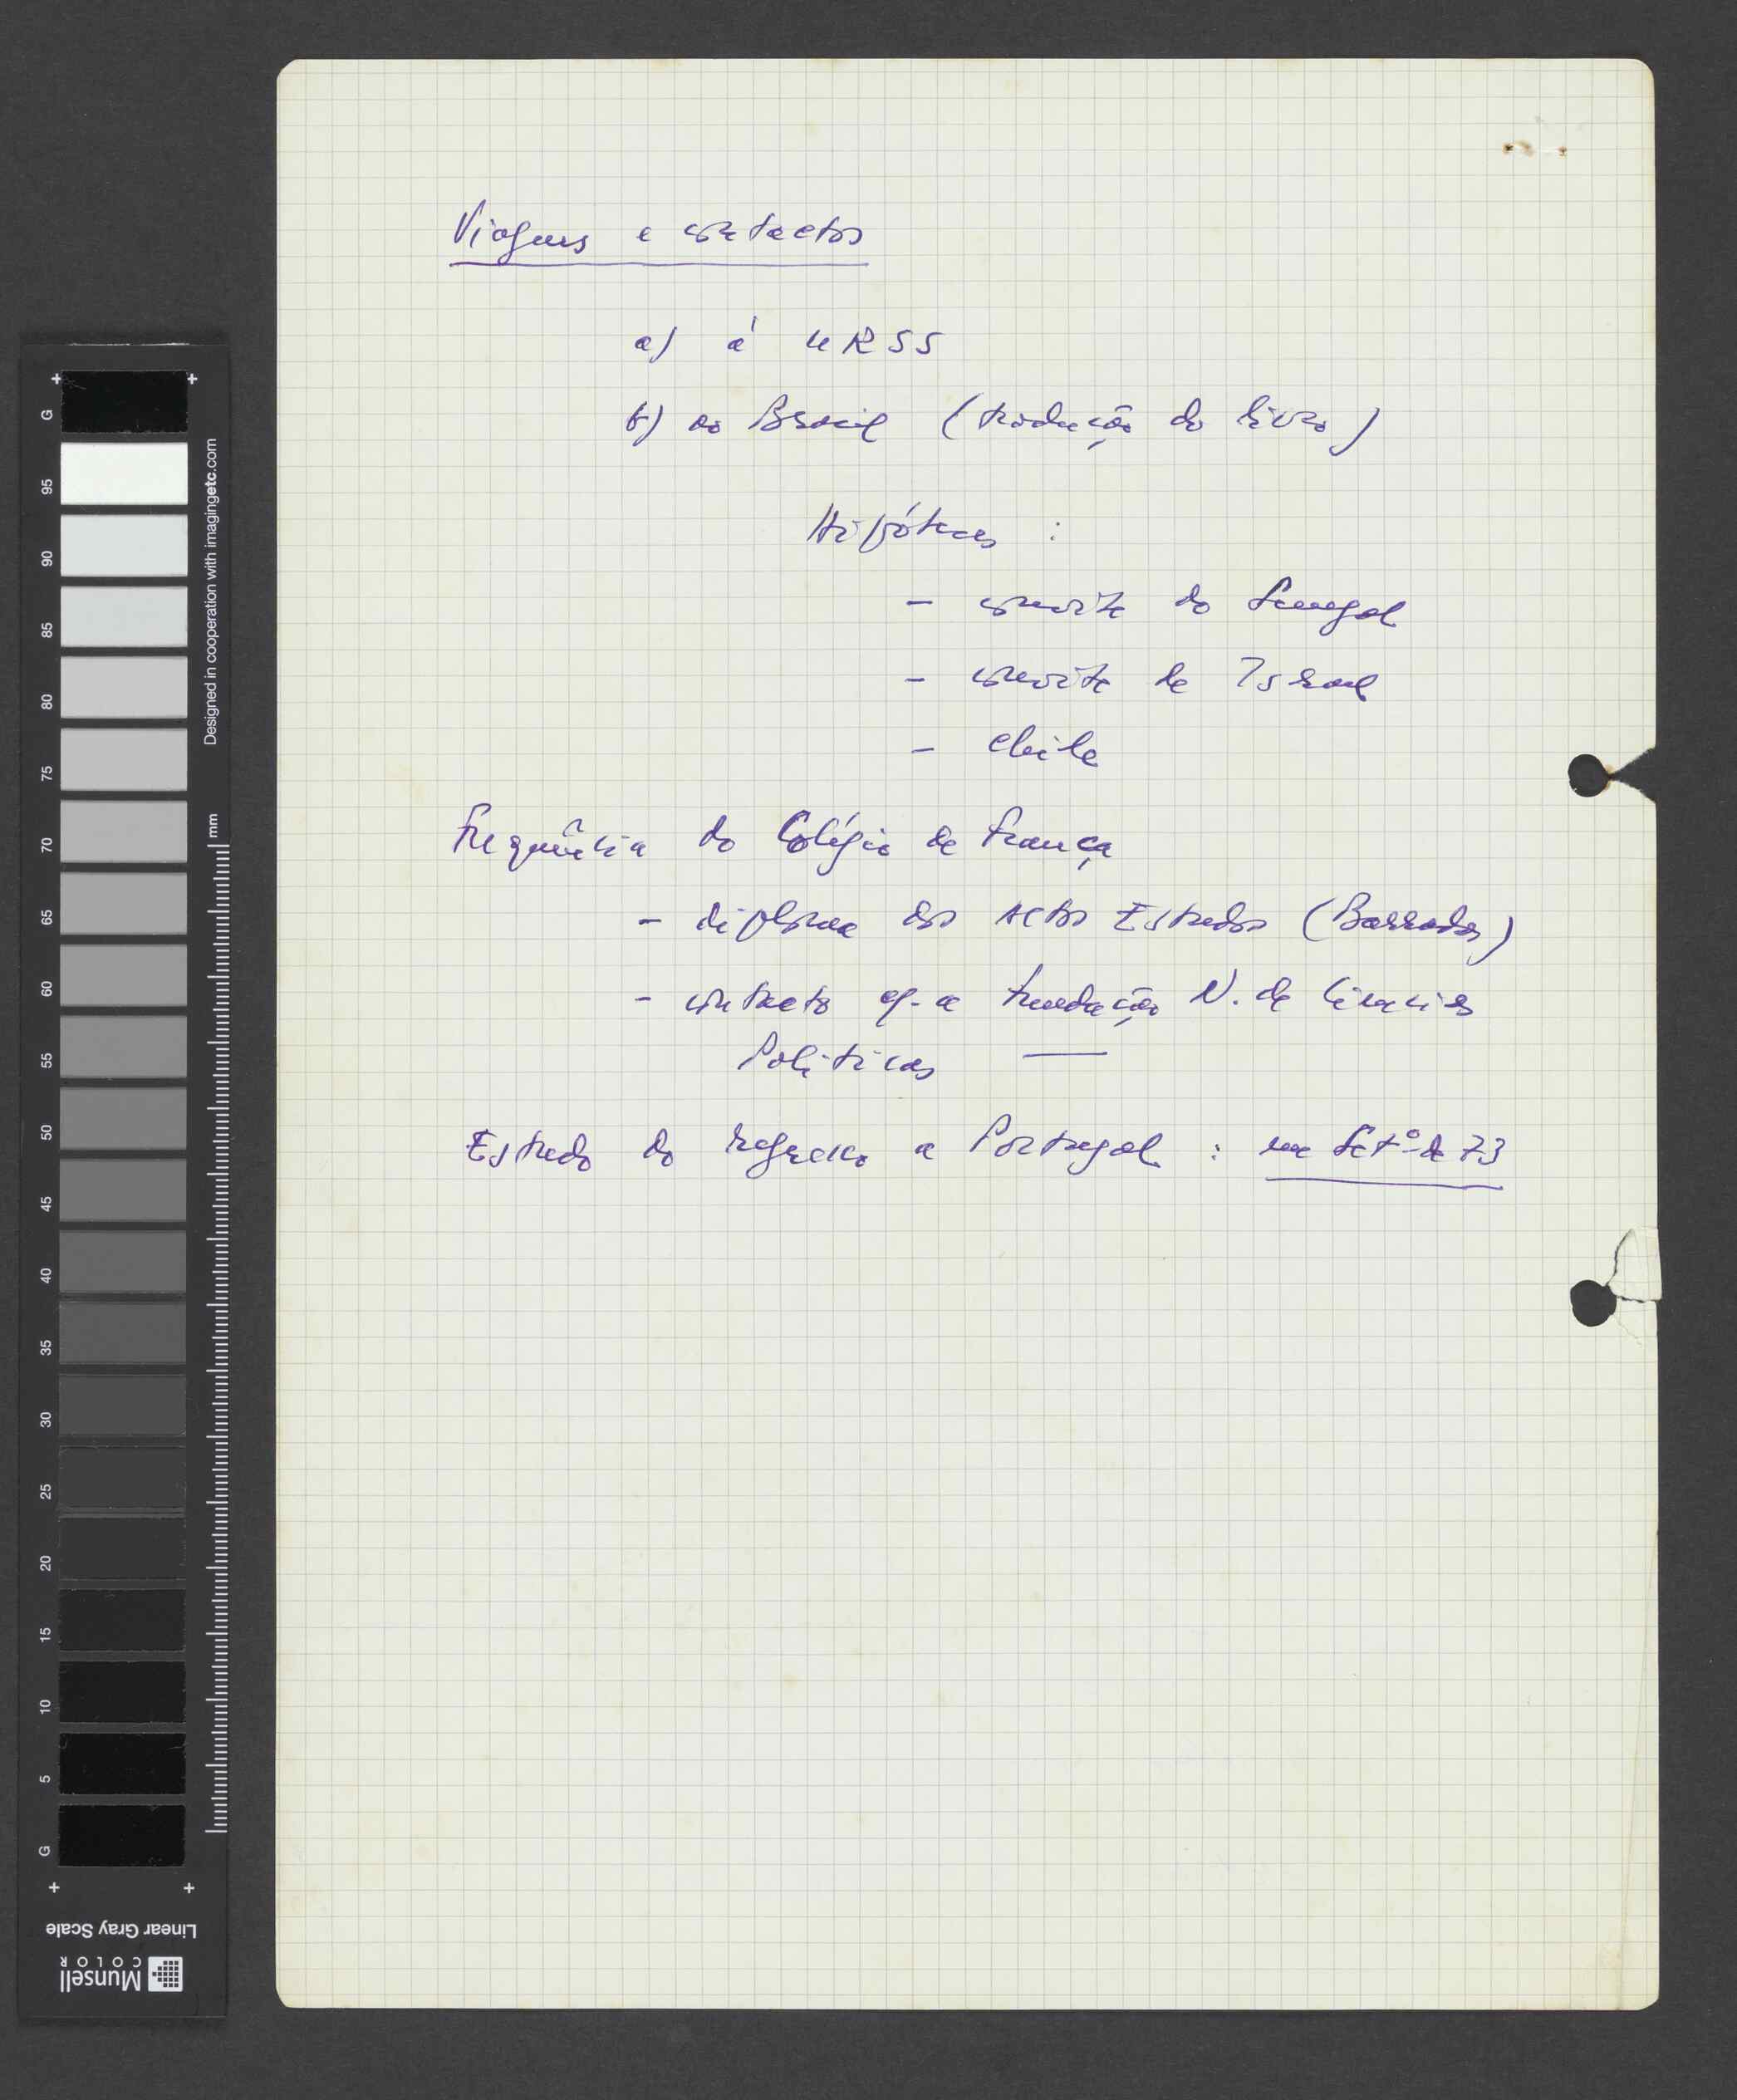 Viagens e contactos
a) á URSS
b) ao Brasil (tradução do livro)
Hipóteses :
- convite do Senegal
- convite de Israel
- Chile
Frequência do Colégio de França
- diploma dos Altos Estudos (Barradas)
- contacto c/ a Fundação N. de Ciencias
Politicas —
Estudo do regresso a Portugal : em Setº de 73
Designed in cooperation with imagingetc.com
mm
G
95
90
85
80
75
70
65
60
55
50
45
40
35
30
25
20
15
10
5
G
Linear Gray Scale
Munsell
COLOR